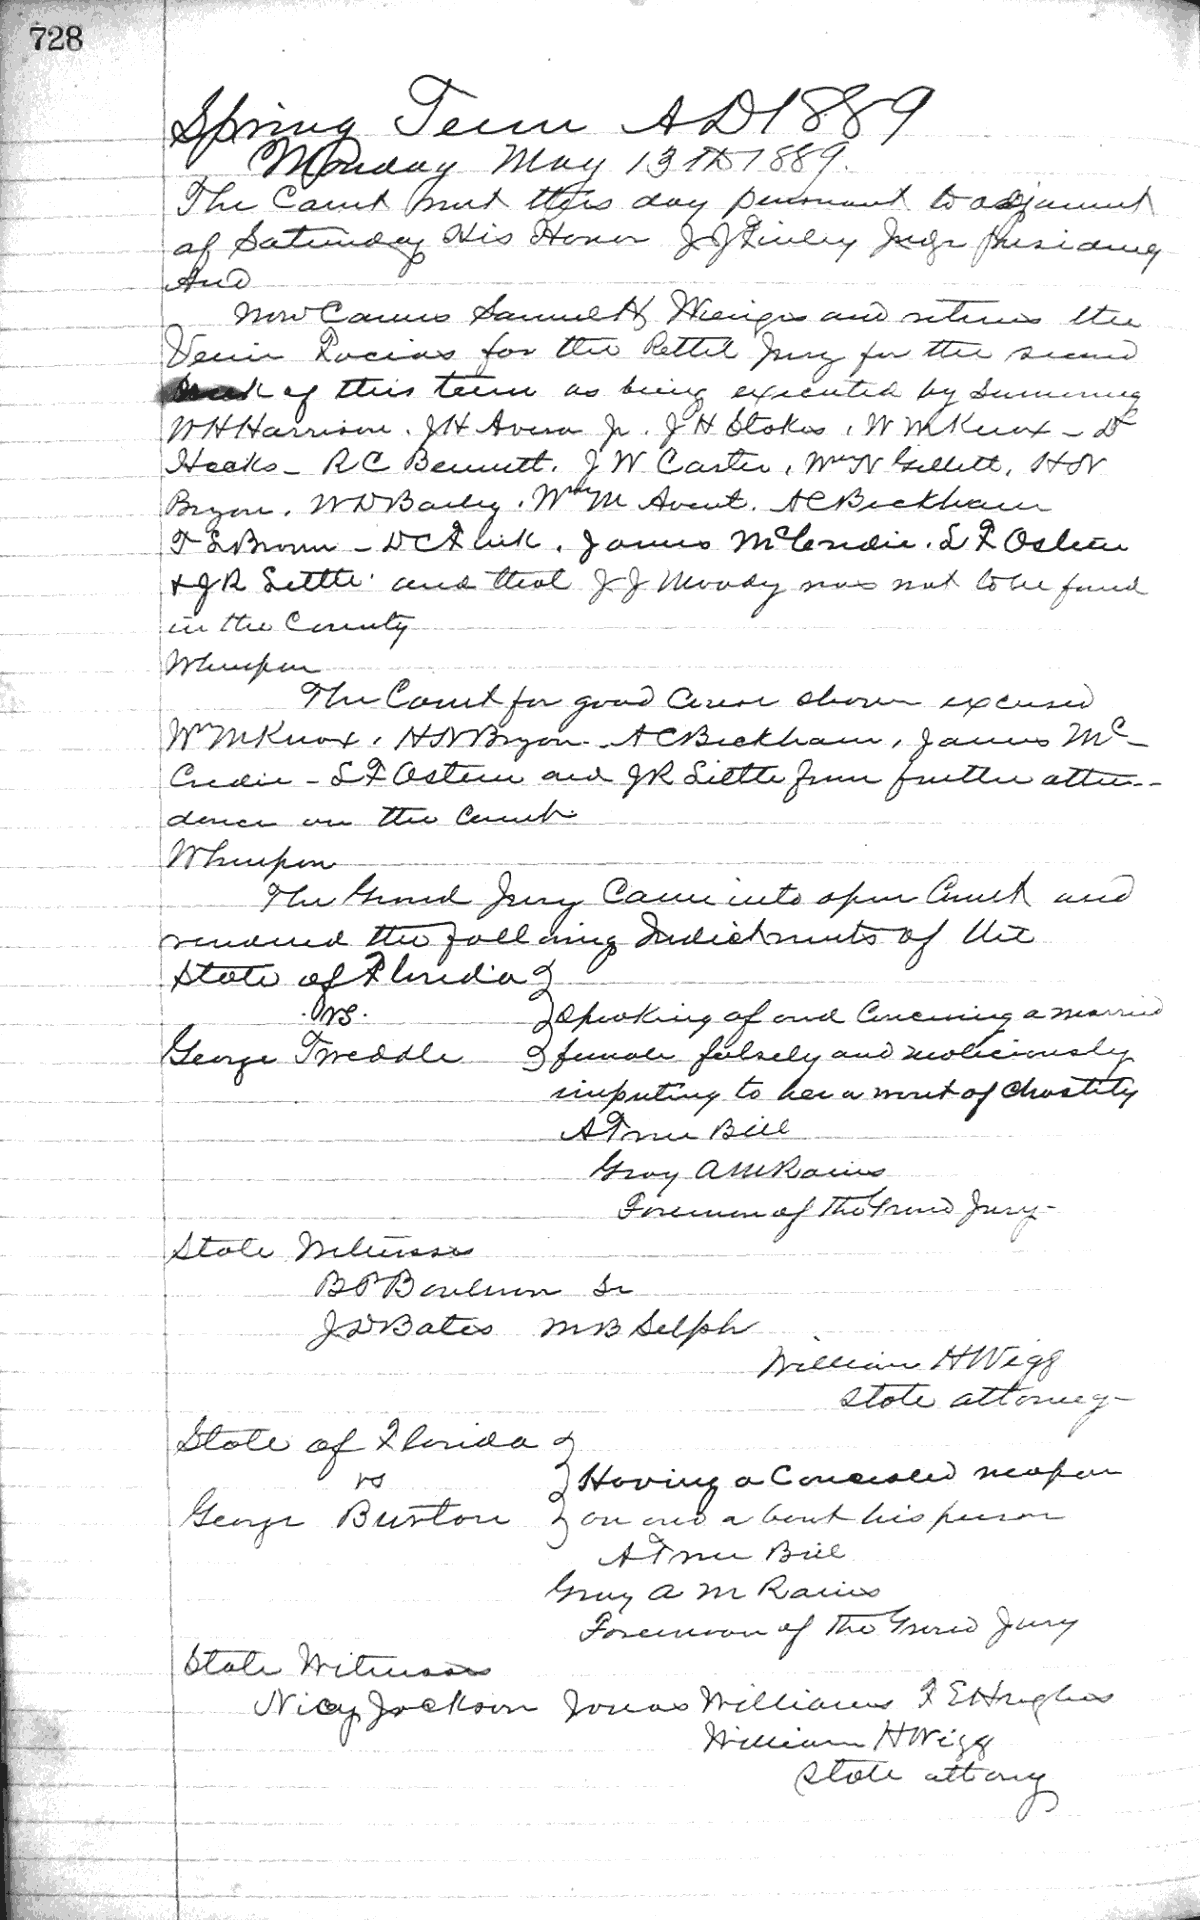 728
Spring Term A D 1889
Monday May 13th 1889.
The Court met this day pursuant to adjourment
of Saturday His Honor J J Finley Judge presiding
And
Now Comes Samuel H and returns the
Venire Facias for the Pettit Jury for the second
week of this term as being executed by summoning
W H Harrison. J H Avera Jr. J H Stokes, W M Knox - D
Heeks - R C Bennett. J W Carter, Wm N Gillett, H N
Bryon. W D Bailey. Wm M Avent. A C Beckham
F E Brown - D C Fink. James McCredie. L F Osteen
& J R Settle. and that J J Moody was not to be found
in the County
Whereupon
The Court for good cause shown excused
Wm M Knox, H N Bryon - A C Beckham, James Mc-
Credie - L F Osteen and J R Settle from further atten--
dence on the Court.
Whereupon
The Grand Jury Came into open Court and
rendered the following Indictments of the
State of Florida
vs.
Speaking of and Concerning a married
George Tweddle female falsely and maliciously
imputing to her a want of Chastity
A True Bill
Gray A M Raines
Foreman of the Grand Jury -
State Witnesses
B P Sr
J D Bates M B Selph
William H Wigg
State attorney -
State of Florida
vs Having a Concealed weapon
George Burton on and about his person
A True Bill
Gray A M Raines
Foreman of the Grand Jury
State Witnesses
Nicy Jackson Jonas Williams F E Hughes
William H Wigg
State attorny